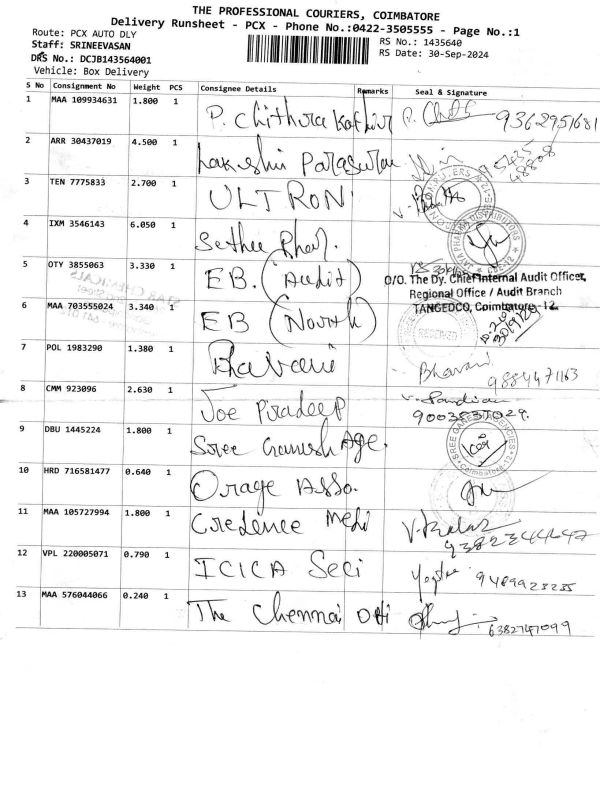 THE PROFESSIONAL COURIERS, COIMBATORE
Delivery Runsheet - PCX - Phone No.:0422-3505555 - Page No.:1
Route: PCX AUTO DLY
RS No.: 1435640
Staff: SRINEEVASAN
RS Date: 30-Sep-2024
DRS No.: DCJB143564001
Vehicle: Box Delivery
S No Consignment No Weight PCS Consignee Details Remarks Seal & Signature
1 MAA 109934631 1.800 1 P. Chithira 9362951681
2 ARR 30437019 4.500 1
3 TEN 7775833 2.700 1 ULTRON
4 IXM 3546143 6.050 1
5 OTY 3855063 3.330 1 EB (Audit)
O/O. The Dy. Chief Internal Audit Officer,
Regional Office / Audit Branch
TANGEDCO, Coimbatore-12.
6 MAA 703555024 3.340 1 EB (North)
RECEIVED
7 POL 1983290 1.380 1 Bavani Bhavani 9884471163
8 CMM 923096 2.630 1 Joe Piradeep
9 DBU 1445224 1.800 1 Sree Ganesh Age.
10 HRD 716581477 0.640 1 Orage Asso.
11 MAA 105727994 1.800 1 Credence Medi
12 VPL 220005071 0.790 1 ICICA Seci
13 MAA 576044066 0.240 1 The Chennai Opti 6382747099